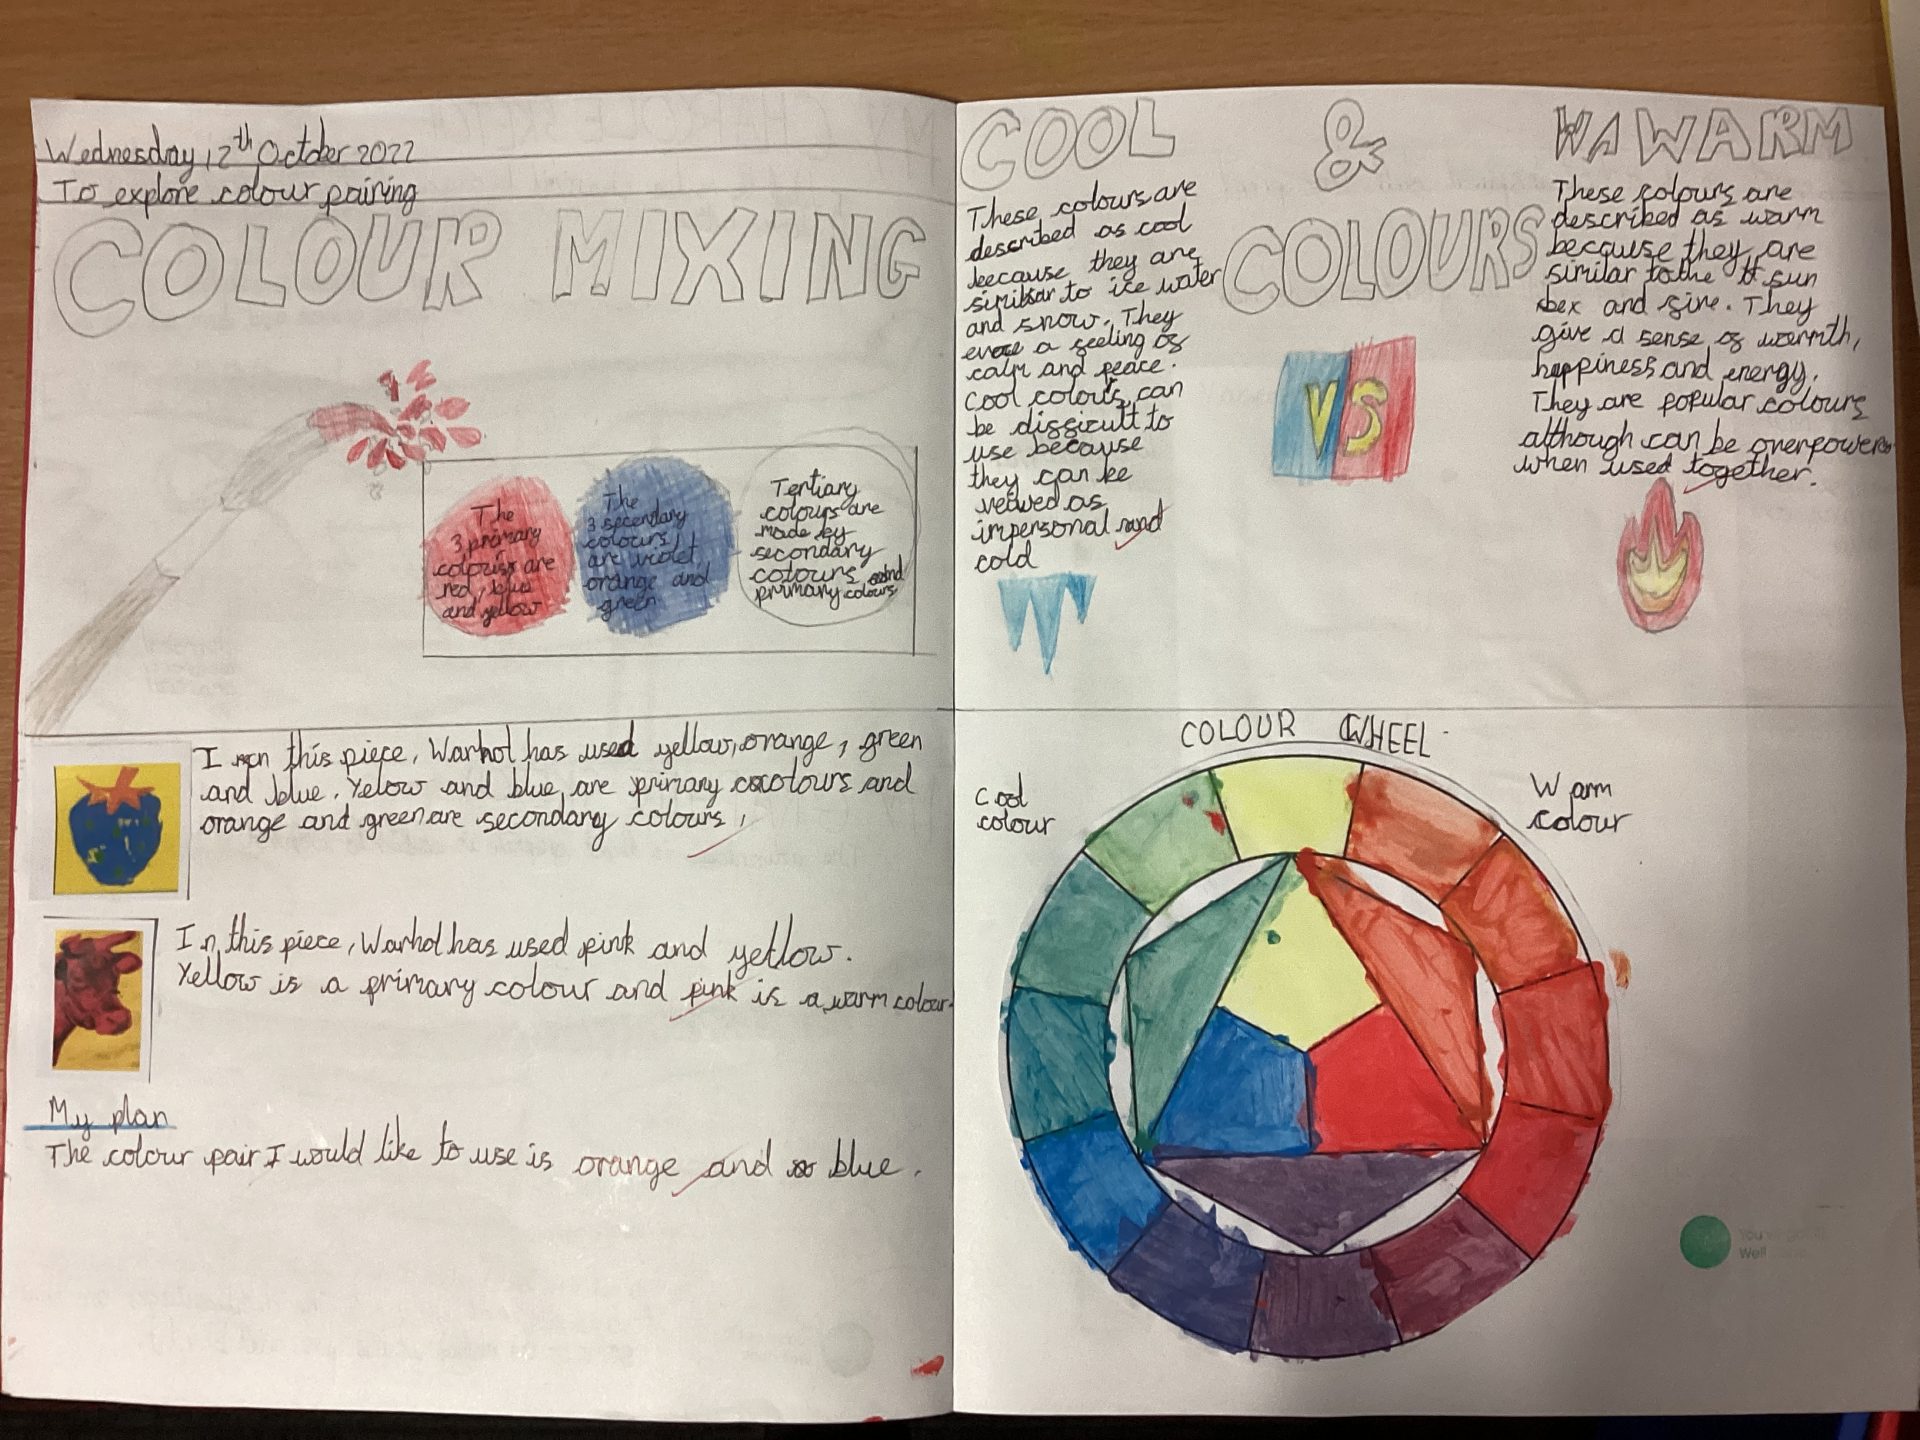 Wednesday 12th October 2022
To explore colour pairing
COLOUR MIXING
The
3 primary
colours are
red, blue
and yellow
The
3 secondary
colours
are violet
orange and
green
Tertiary
colours are
made by
secondary
colours and
primary colours
I n this piece, Warhol has used yellow, orange, green
and blue. Yelow and blue are primary colours and
orange and green are secondary colours,
In this piece, Warhol has used pink and yellow.
Yellow is a primary colour and pink is a warm colour.
My plan
The colour pair I would like to use is orange and blue.
COOL & WA WARM
COLOURS
These colours are
described as cool
because they are
similar to ice water
and snow. They
a feeling of
calm and peace.
Cool colours can
be difficult to
use because
they can be
veiwed as
impersonal and
cold
VS
These colours are
described as warm
because they are
similar to the sun
and fire. They
give a sense of warmth,
happiness and energy.
They are popular colours
although can be
when used together.
COLOUR WHEEL
Cool
colour
Warm
colour
Well